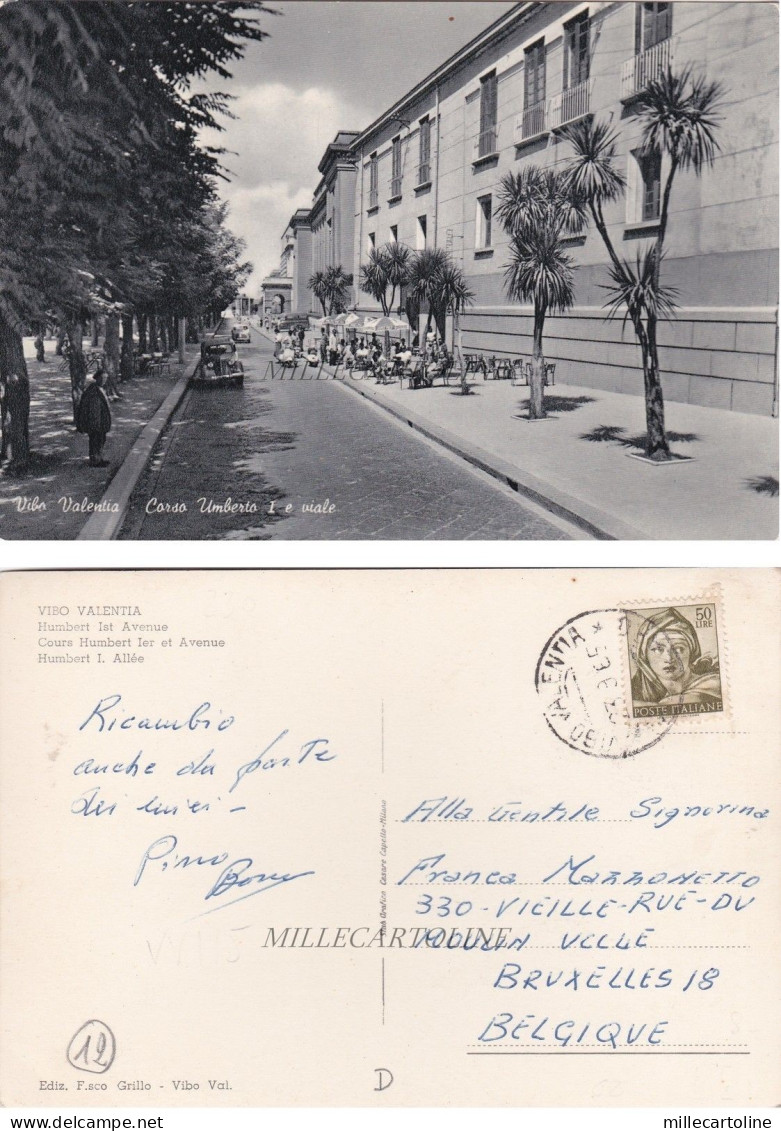 Vibo Valentia - Corso Umberto I e viale
MILLECARTOLINE
VIBO VALENTIA
Humbert Ist Avenue
Cours Humbert Ier et Avenue
Humbert I. Allée
50
LIRE
POSTE ITALIANE
VALENTIA
VIBO
Ricambio
anche da parte
dei miei -
Pino
Alla Gentile Signorina
Franca Mazzonetto
330-VIEILLE-RUE-DU
MOULIN VELLE
BRUXELLES 18
BELGIQUE
MILLECARTOLINE
Cesare Capello-Milano
12
D
Ediz. F.sco Grillo - Vibo Val.
millecartoline